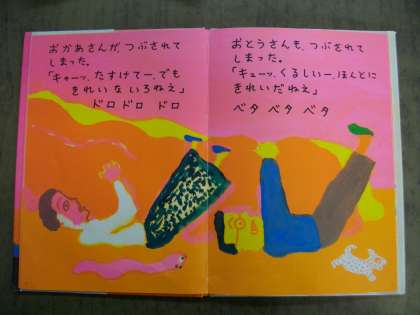 おかあさんが、つぶされて
しまった。
「キャーッ、たすけてー、でも
きれいないろねえ」
ドロ ドロ ドロ
おとうさんも、つぶされて
しまった。
「キューッ、くるしいー、ほんとに
きれいだねえ」
ベタ ベタ ベタ